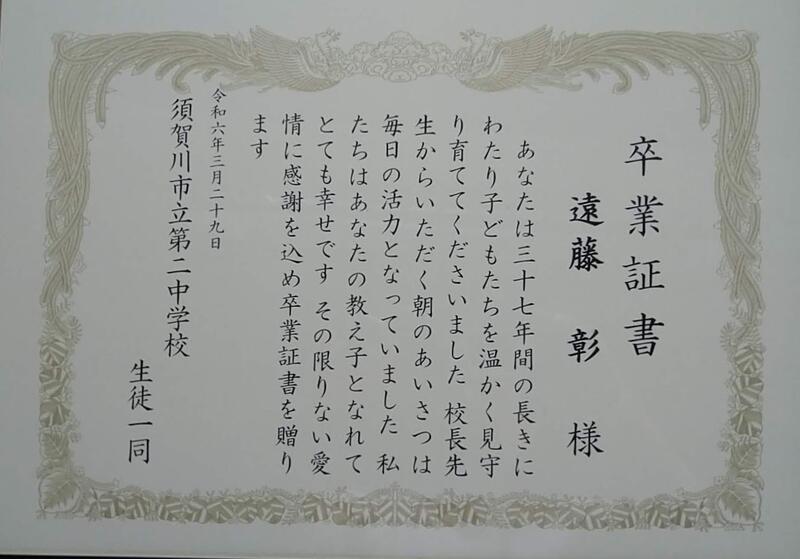 卒業証書
遠藤 彰 様
あなたは三十七年間の長きに
わたり子どもたちを温かく見守
り育ててくださいました 校長先
生からいただく朝のあいさつは
毎日の活力となっていました 私
たちはあなたの教え子となれて
とても幸せです その限りない愛
情に感謝を込め卒業証書を贈り
ます
令和六年三月二十九日
須賀川市立第二中学校
生徒一同